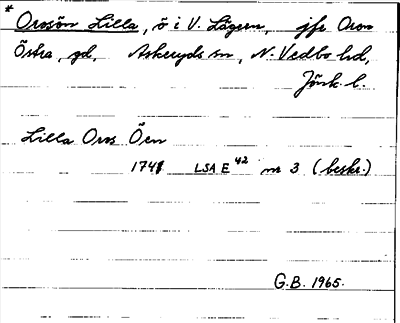 * Orosön Lilla, ö i V. Lägern, jfr Oron
Östra, gd, Askeryds sn, N. Vedbo hd,
Jönk. l.
Lilla Oros Örn
1741 LSA E 42 nr 3 (beskr.)
G.B. 1965.